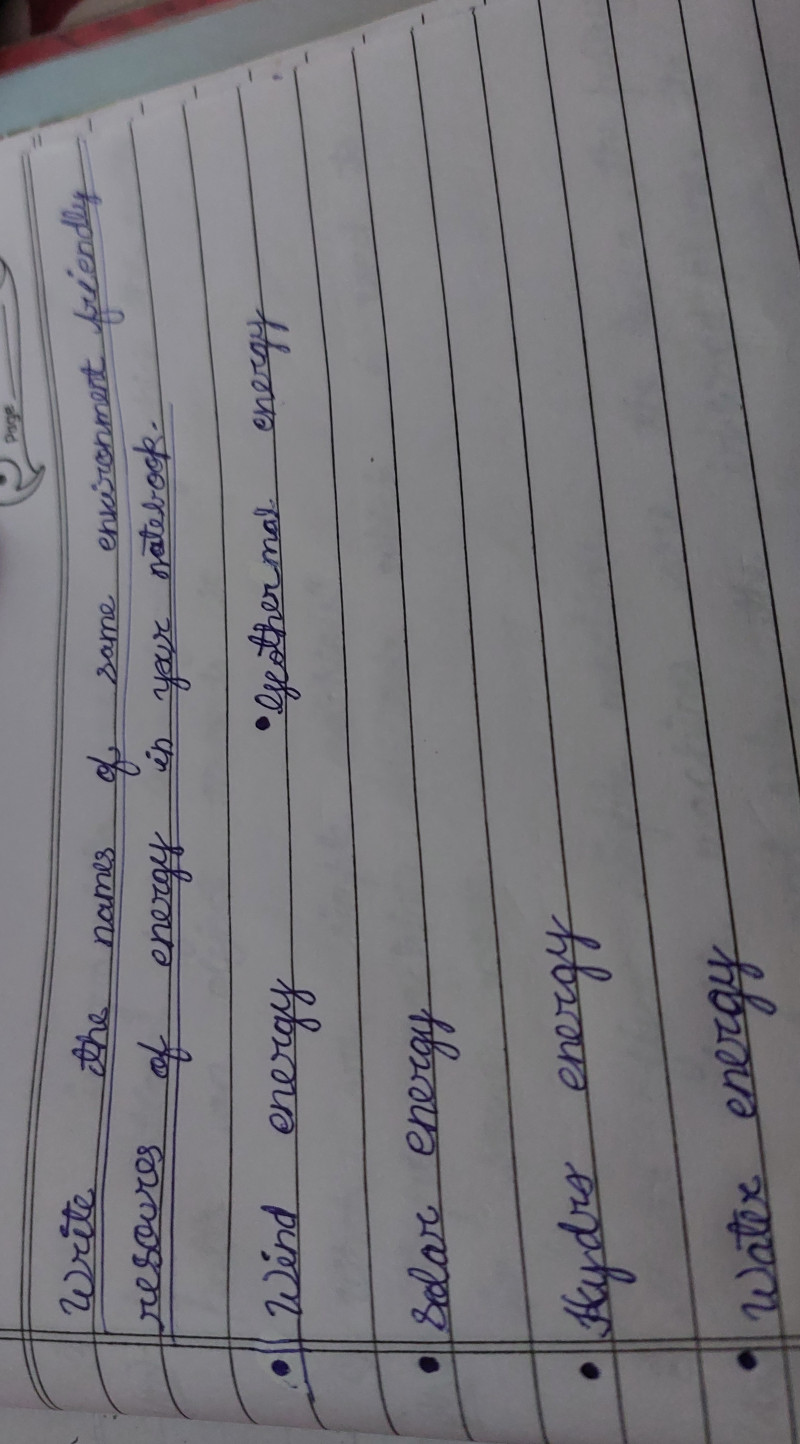 Page
Write the names of some environment friendly
resoures of energy in your notebook.
• Wind energy • Geothermal energy
• Solar energy
• Hydro energy
• Water energy